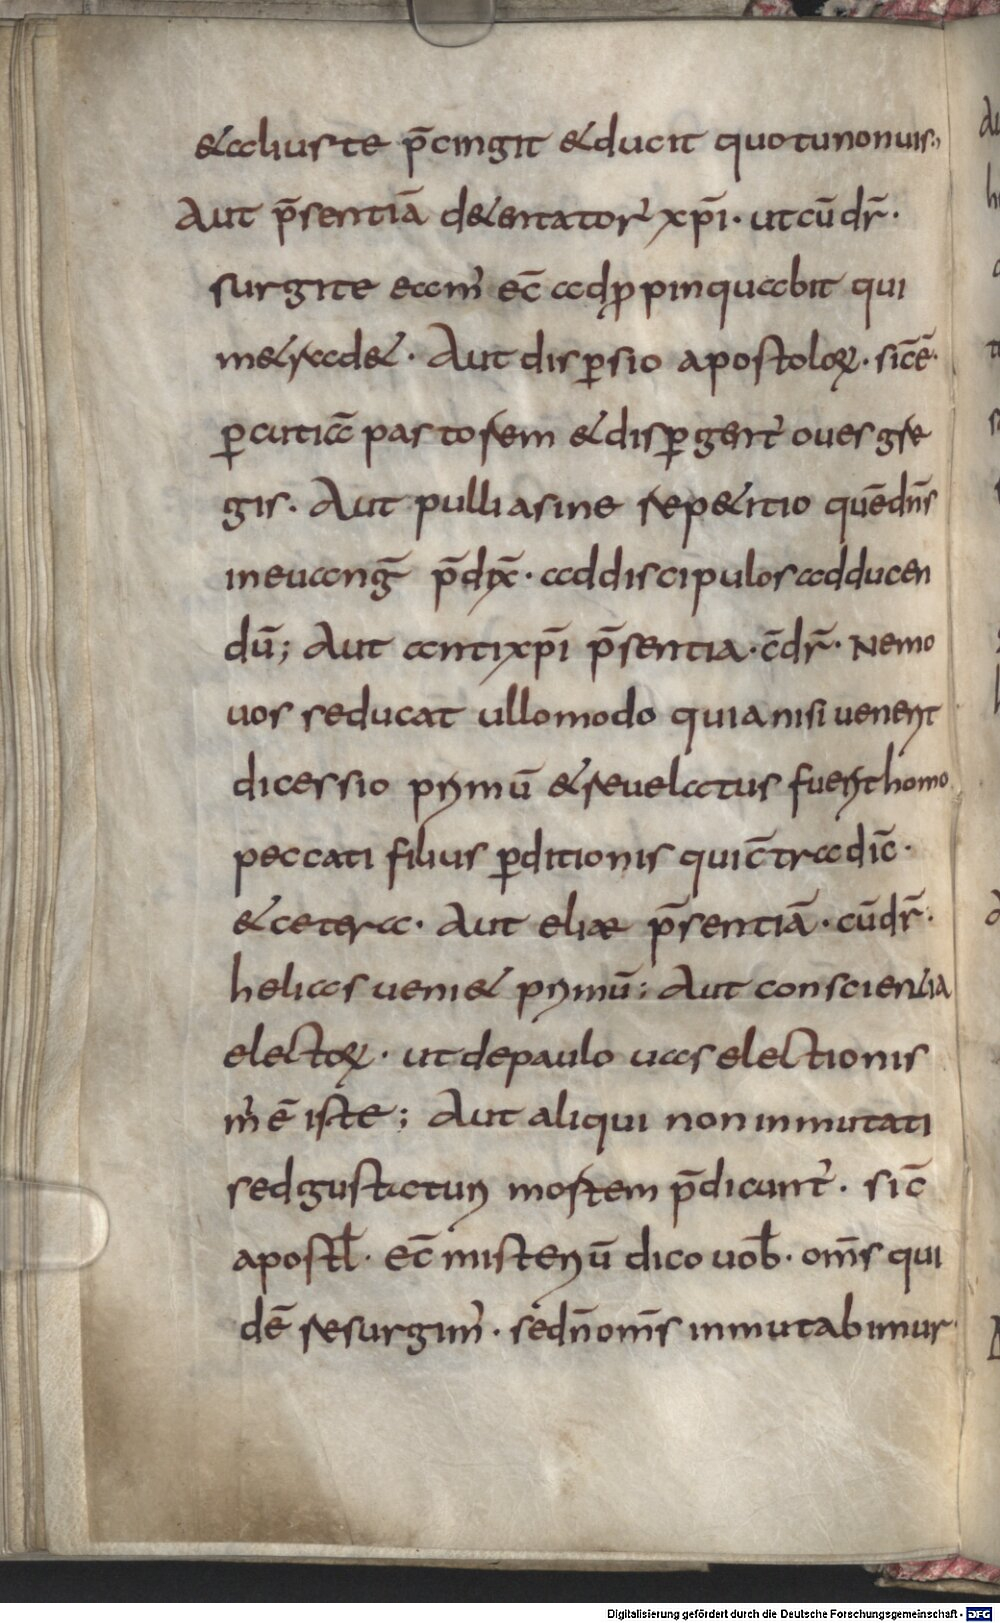 &alius te p̄cingit &ducit quo tu non uis.,
Aut p̄sentiā de&entator' xp̄i · ut cū dr̄ ·
surgite eam' ec̄ adp̱pinquabit qui
me&rad& · Aut dispersio apostoloꝝ · sic̄ē ·
ꝑcutiā pastorem &dispꝑgent' oues gre
gis · Aut pulli asine rep&itio quē dn̄s
in euang̅ p̄dix̄ · ad discipulos adducen
dū; Aut antixp̄i p̄sentia · c̄ dr̄ · Nemo
uos seducat ullomodo quia nisi uenerit
dicessio primū &reuelatus fuerit homo
peccati filius ꝑditionis qui c̄tradic̄ ·
&cetera · Aut eliæ p̄sentiā · cū dr̄ ·
helias ueni& primū: Aut conscientia
electoꝝ · ut de paulo uas electionis
m' ē iste; Aut aliqui non inmutati
sed gustaturi mortem p̄dicant' · sic̄
apostl̄ · ec̄ misteriū dico uob̄ · om̄s qui
dē resurgim' · sed n̄ om̄s inmutabimur
Digitalisierung gefördert durch die Deutsche Forschungsgemeinschaft - DFG